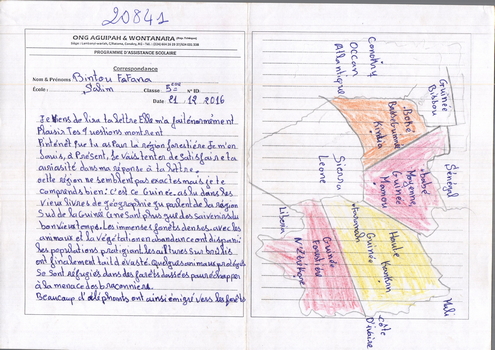 20841
ONG AGUIPAH & WONTANARA
PROGRAMME D'ASSISTANCE SCOLAIRE
Correspondance
Nom & Prénoms Bintou Fofana
École : Salim Classe 5ème N° ID
Date : 21.12.2016
Je viens de lire ta lettre Elle m'a fait énormément
Plaisir Tes questions montrent
l'intérêt que tu as Pour la région forestière Je m'en
Savis, à Présent, Je vais tenter de Satisfaire ta
curiosité dans ma réponse à ta lettre.
cette région ne semblent pas exactes mais je te
comprends bien : c'est ce Guinée as lu dans les
vieux livres de géographie qui parlent de la région
Sud de la Guinée Ce ne Sont plus que des Souvenirs du
bon vieux temps. Les immenses forêts denses avec les
animaux et la végétation en abondance ont disparu
les populations pratiquant les cultures sur brûlis
ont finalement tout dévasté. Quelques animaux protégés
Se Sont réfugiés dans des forêts classées pour échapper
à la menace des braconniers.
Beaucoup d'éléphants ont ainsi émigré vers les forêts
Conakry
Océan
Atlantique
Guinée
Bissau
Boké
Kindia
Sénégal
Labé
Moyenne
Guinée
Mamou
Sierra
Leone
Mali
Haute
Guinée
Kankan
Faranah
Guinée
Forestière
N'Zérékoré
Liberia
Côte
D'ivoire